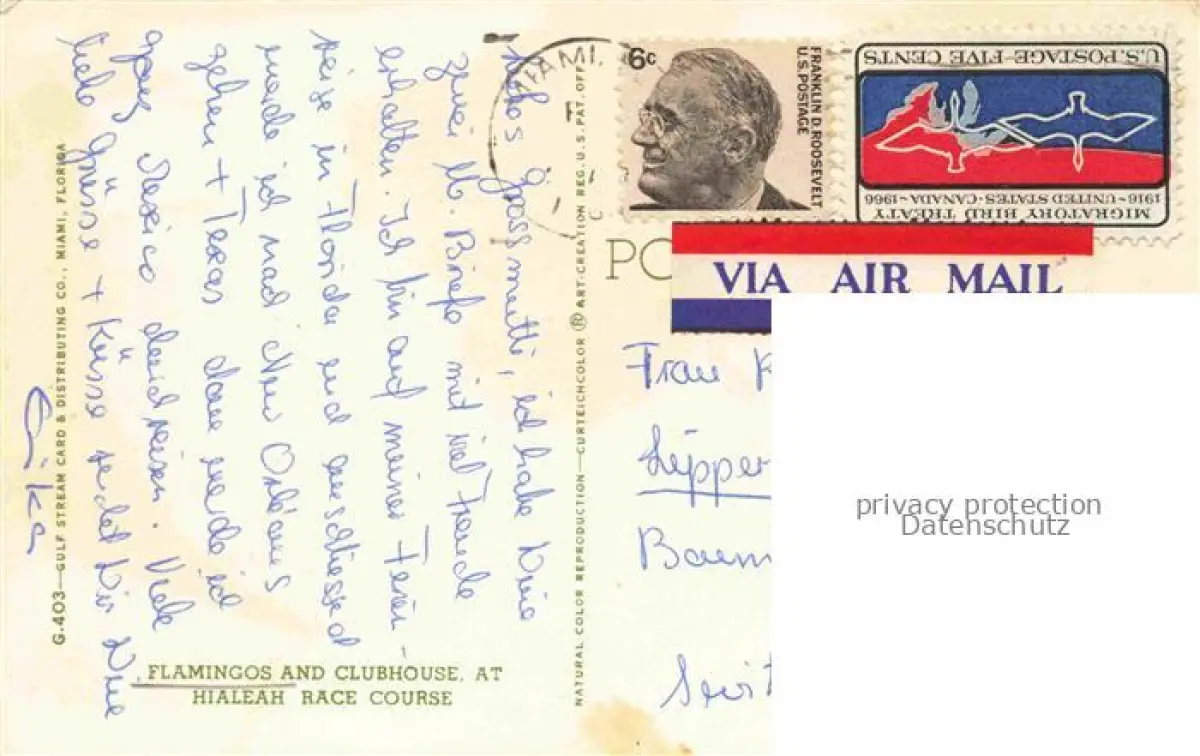 Liebes Grossmutti, ich habe Deine
zwei lb. Briefe mit viel Freude
erhalten. Ich bin auf meiner Ferien-
reise in Florida und anschliessend
werde ich nach New Orleans
gehen + Texas dann werde ich
ganz Mexico durchreisen. Viele
liebe Grüsse + Küsse sendet Dir Deine
Erika
G.403—GULF STREAM CARD & DISTRIBUTING CO., MIAMI, FLORIDA
FLAMINGOS AND CLUBHOUSE, AT
HIALEAH RACE COURSE
NATURAL COLOR REPRODUCTION—CURTEICHCOLOR ® ART-CREATION REG. U.S. PAT. OFF.
MIAMI,
6c
FRANKLIN D. ROOSEVELT
U.S. POSTAGE
U.S. POSTAGE - FIVE CENTS
1916 - UNITED STATES · CANADA - 1966
MIGRATORY BIRD TREATY
PO
VIA AIR MAIL
Frau K
Lipper
Baum
privacy protection
Datenschutz